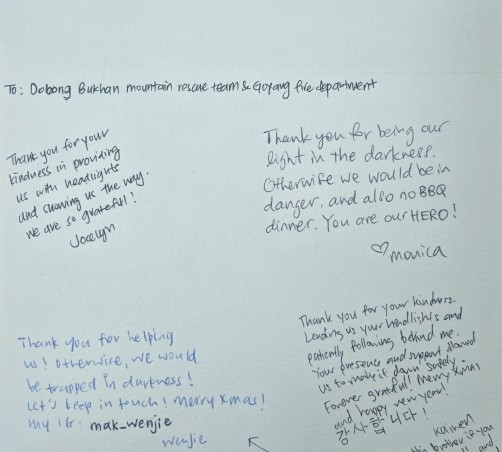 To: Dobong Bukhan mountain rescue team & Goyang fire department
Thank you for your
kindness in providing
us with headlights
and showing us the way.
We are so grateful!
Jocelyn
Thank you for being our
light in the darkness.
Otherwise we would be in
danger, and also no BBQ
dinner. You are our HERO!
♡monica
Thank you for helping
us! Otherwise, we would
be trapped in darkness!
Let's keep in touch! Merry Xmas!
my IG: mak_wenjie
wenjie
Thank you for your kindness.
Lending us your headlights and
patiently following behind me.
Your presence and support allowed
us to make it down safely.
Forever grateful! Merry Xmas
and happy new year!
감사합니다!
brother if you
and